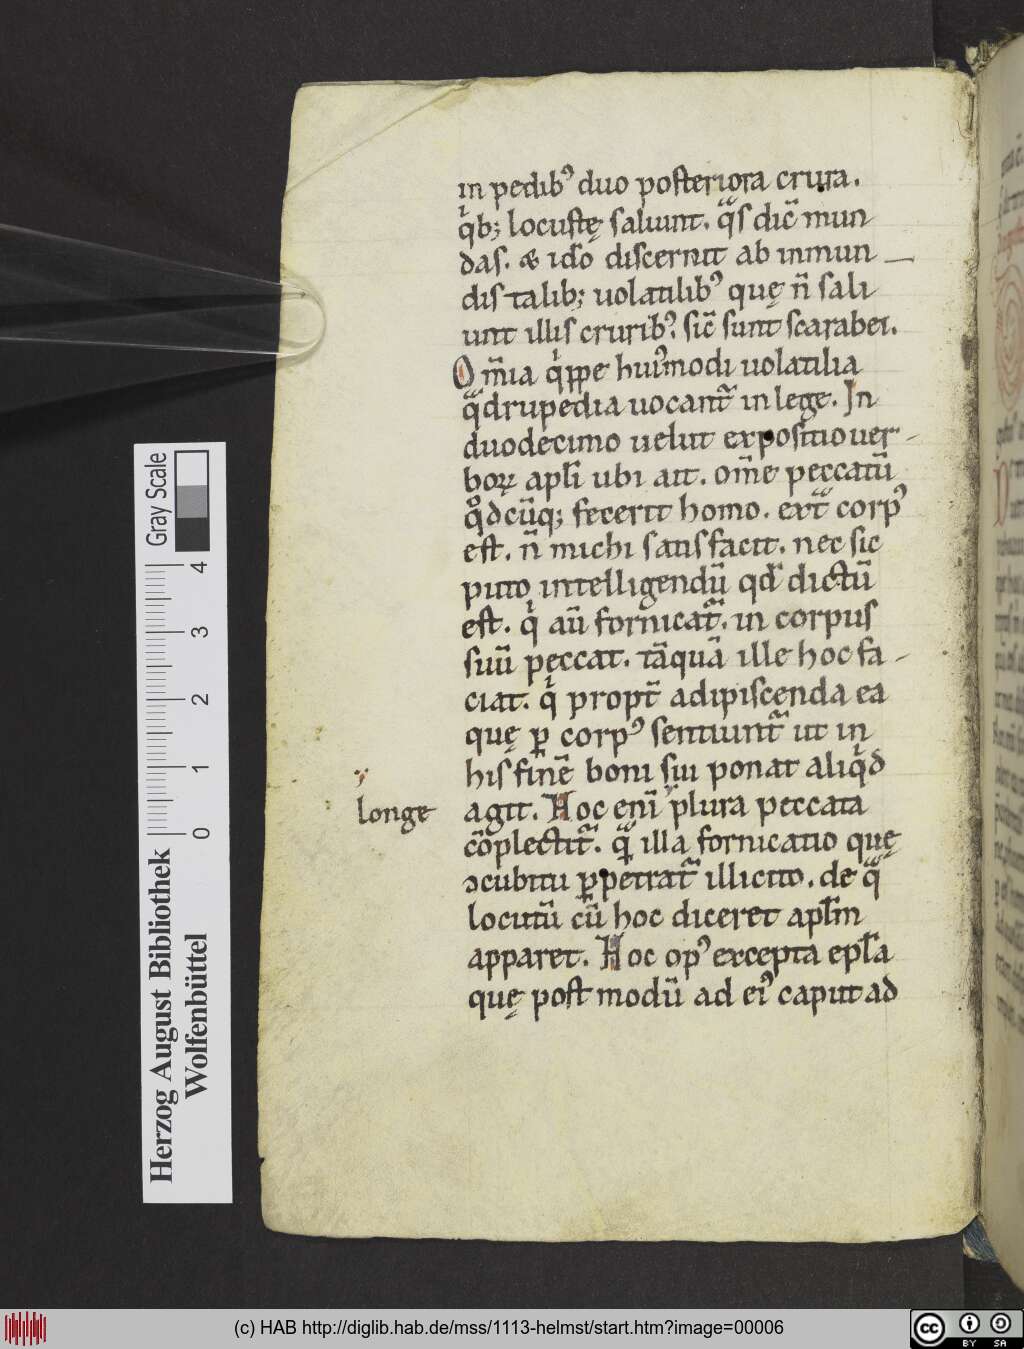 in pedibꝰ duo posteriora crura.
qͥb; locustę saliunt. qͣs dic̄ mun
das. & id̄o discernit ab inmun
dis talib; uolatilibꝰ quę n̄ sali
unt illis cruribꝰ. sic̄ sunt scarabei.
Om̄ia qͥppe huiꝰmodi uolatilia
qͣdrupedia uocant᷑ in lege. In
duodecimo uelut expositio uer-
boꝝ apl̄i ubi ait. om̄e peccatū
qͦdcūq; fecerit homo. extͣ corpꝰ
est. n̄ michi satisfacit. nec sic
puto intelligendū qd̄ dictū
est. qͥ aū fornicat᷑. in corpus
suū peccat. tāquā ille hoc fa-
ciat. qͥ propt̄ adipiscenda ea
quę ꝑ corpꝰ sentiunt᷑ ut in
his finē boni sui ponat aliqͥd
longe
agit. Hoc enī plura peccata
cōplectit᷑. qͣꝫ illa fornicatio quę
ꝯcubitu ꝑpetrat᷑ illicito. de qͣ
locutū cū hoc diceret apl̄m
apparet. Hoc opꝰ excepta epl̄a
quę postmodū ad eiꝰ caput ad
Herzog August Bibliothek
Wolfenbüttel
0 1 2 3 4
Gray Scale
(c) HAB http://diglib.hab.de/mss/1113-helmst/start.htm?image=00006
cc BY SA